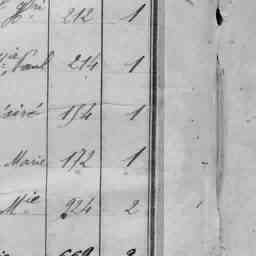 H.ri 212 1
Paul 214 1
154 1
Marie 172 1
M.ie 924 2